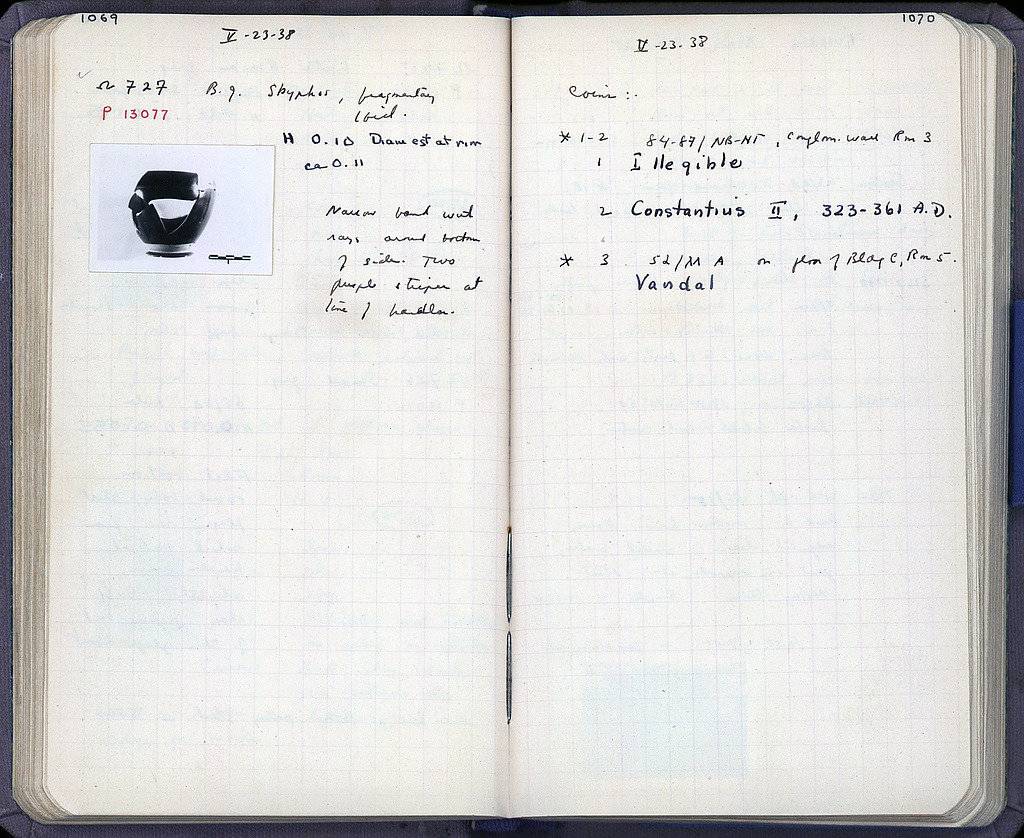 1069
V-23-38
Ω 727 B.g. Skyphos, fragmentary
Ibid.
P 13077
H 0.10 Diam est at rim
ca 0.11
Narrow band with
rays around bottom
of side. Two
purple stripes at
line of handles.
1070
V-23-38
Coins:
* 1-2 84-87/NB-NΓ, Conglom. wall Rm 3
1 Illegible
2 Constantius II, 323-361 A.D.
* 3 52/ΛΑ A on floor of Bldg C, Rm 5.
Vandal